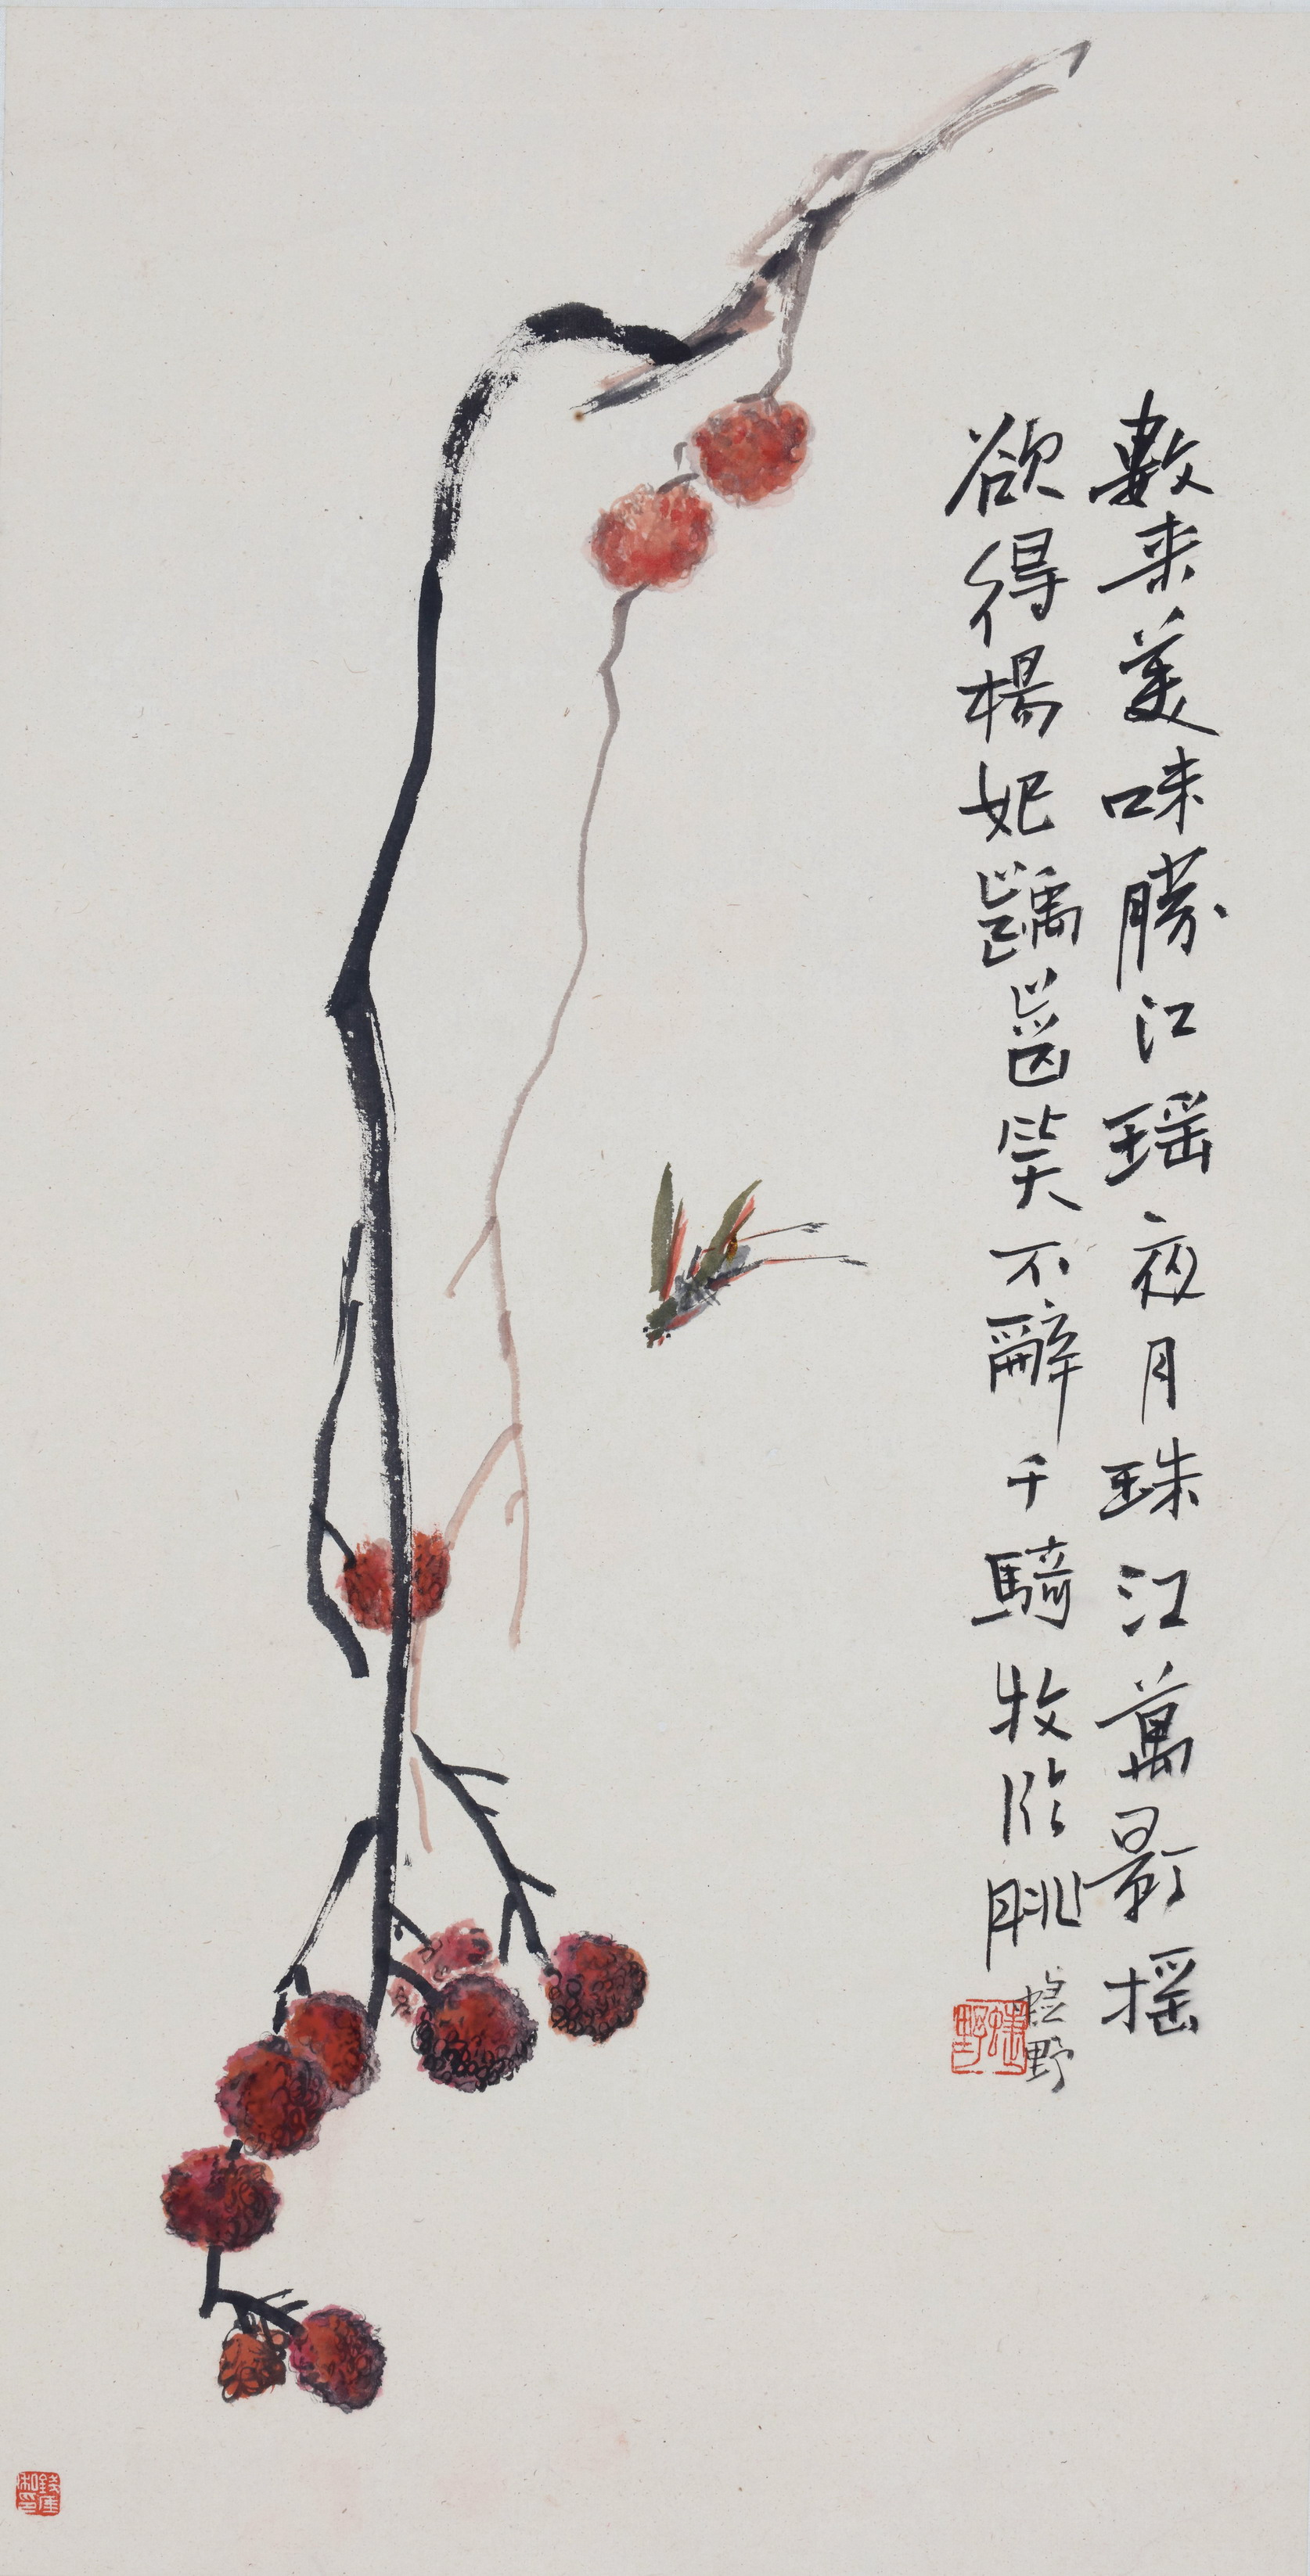 數来美味勝江瑶夜月珠江萬影摇
欲得楊妃齲齒笑不辭千騎牧臨眺
野